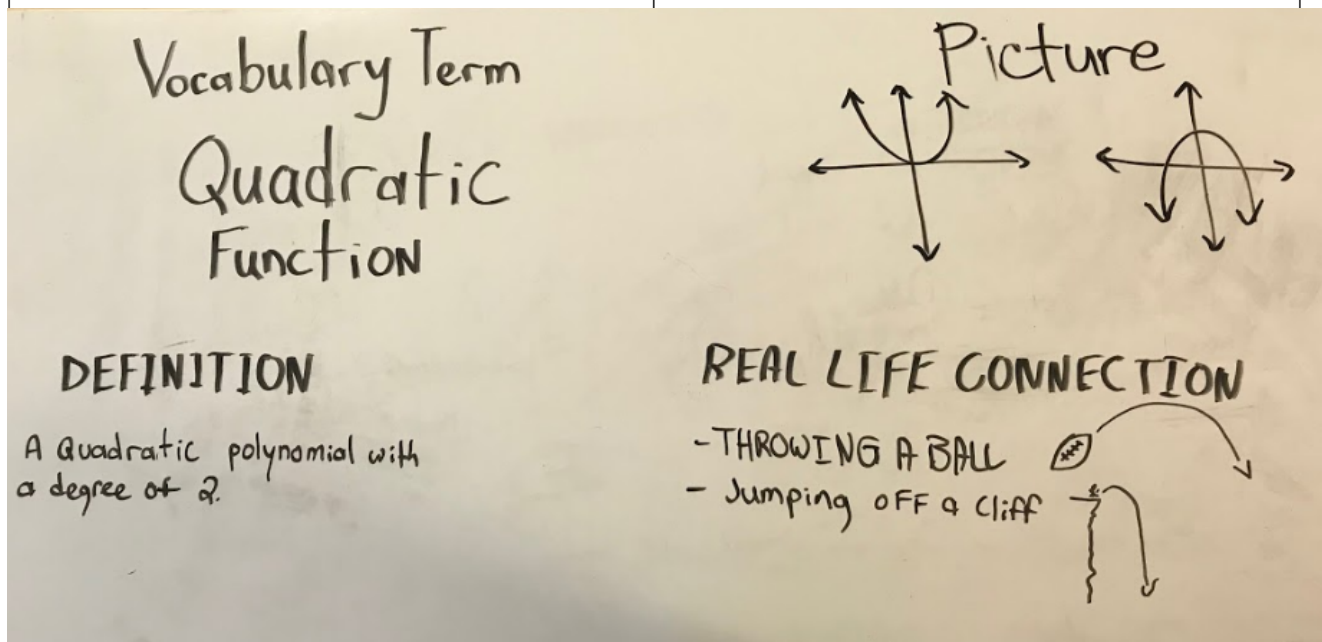 Vocabulary Term
Quadratic
Function
Picture
DEFINITION
A Quadratic polynomial with
a degree of 2.
REAL LIFE CONNECTION
- THROWING A BALL
- Jumping OFF a Cliff